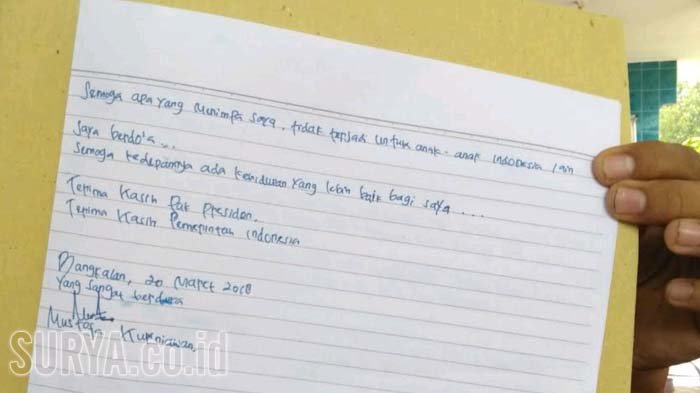 Semoga apa yang menimpa saya, tidak terjadi untuk anak-anak Indonesia lain
Saya berdo'a...
Semoga kedepannya ada kehidupan yang lebih baik bagi saya...
Terima Kasih Pak Presiden.
Terima Kasih Pemerintah Indonesia
Bangkalan, 20 Maret 2018
Yang sangat berduka
Mustofa Kurniawan.
SURYA.co.id